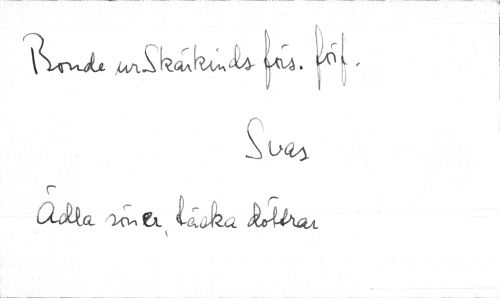 Bonde ur Skärkinds förs. förf.
Svar
Ädla söner, täcka döttrar